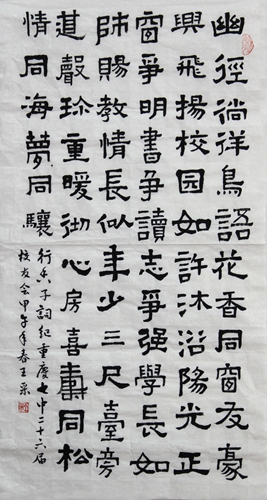 幽徑徜徉鳥語花香同窗友豪
興飛揚校园如許沐浴陽光正
窗爭明書争讀志爭强學長如
師賜教情長似年少三尺臺旁
道聲珍重暖彻心房喜壽同松
情同海夢同驤
行香子詞紀重慶七中二十六届
校友会甲午年春王采